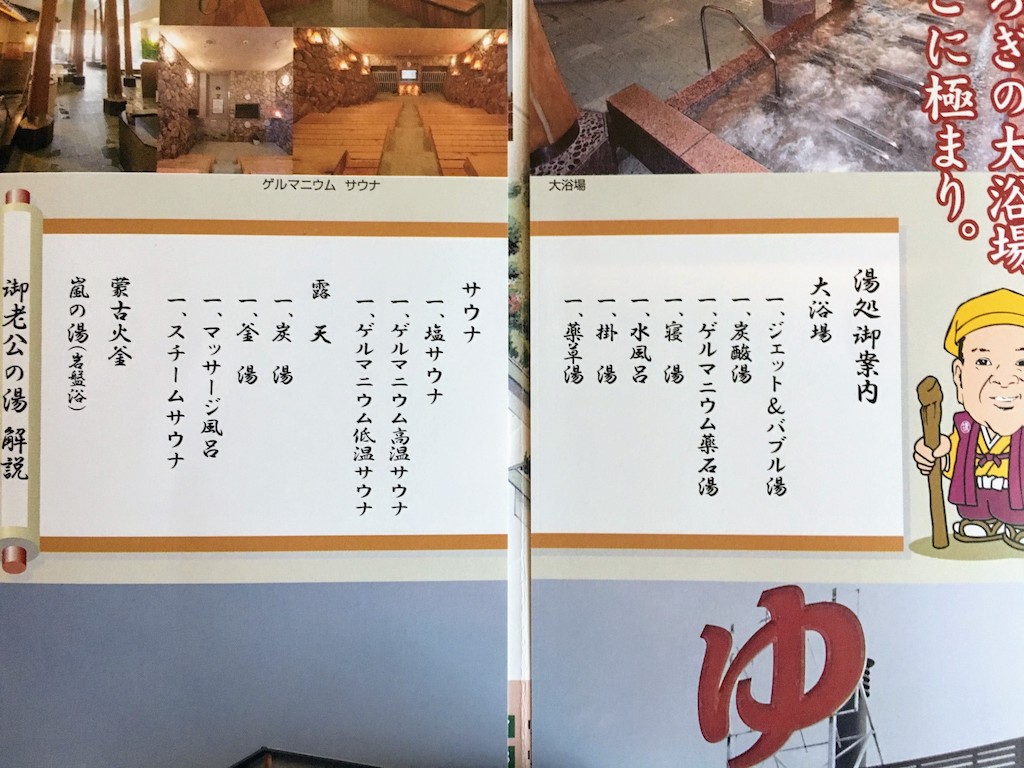 ろぎの大浴場
こに極まり。
大浴場
湯処御案内
大浴場
一、ジェット&バブル湯
一、炭酸湯
一、ゲルマニウム薬石湯
一、寝 湯
一、水風呂
一、掛 湯
一、薬草湯
ゲルマニウム サウナ
サウナ
一、塩サウナ
一、ゲルマニウム高温サウナ
一、ゲルマニウム低温サウナ
露 天
一、炭 湯
一、釜 湯
一、マッサージ風呂
一、スチームサウナ
蒙古火釜
嵐の湯(岩盤浴)
御老公の湯 解説
ゆ